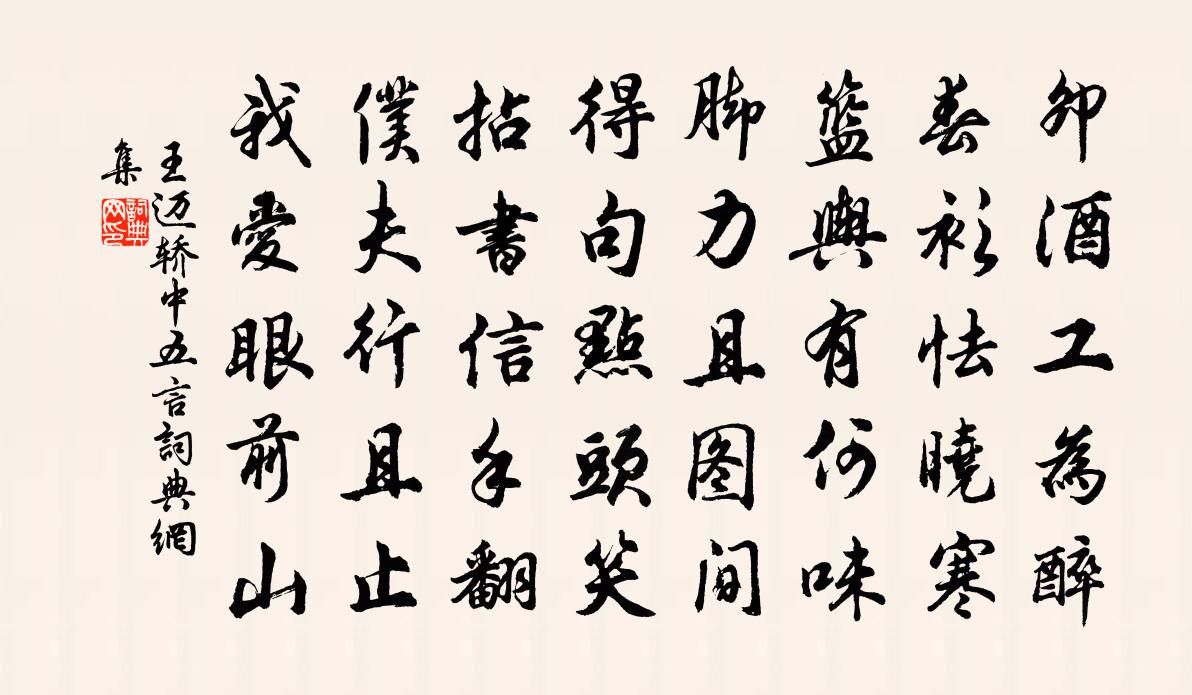 卯酒工為醉
春衫怯曉寒
籃輿有何味
脚力且图间
得句點頭笑
拈書信手翻
僕夫行且止
我愛眼前山
王迈轿中五言詞典網
集
詞典网印